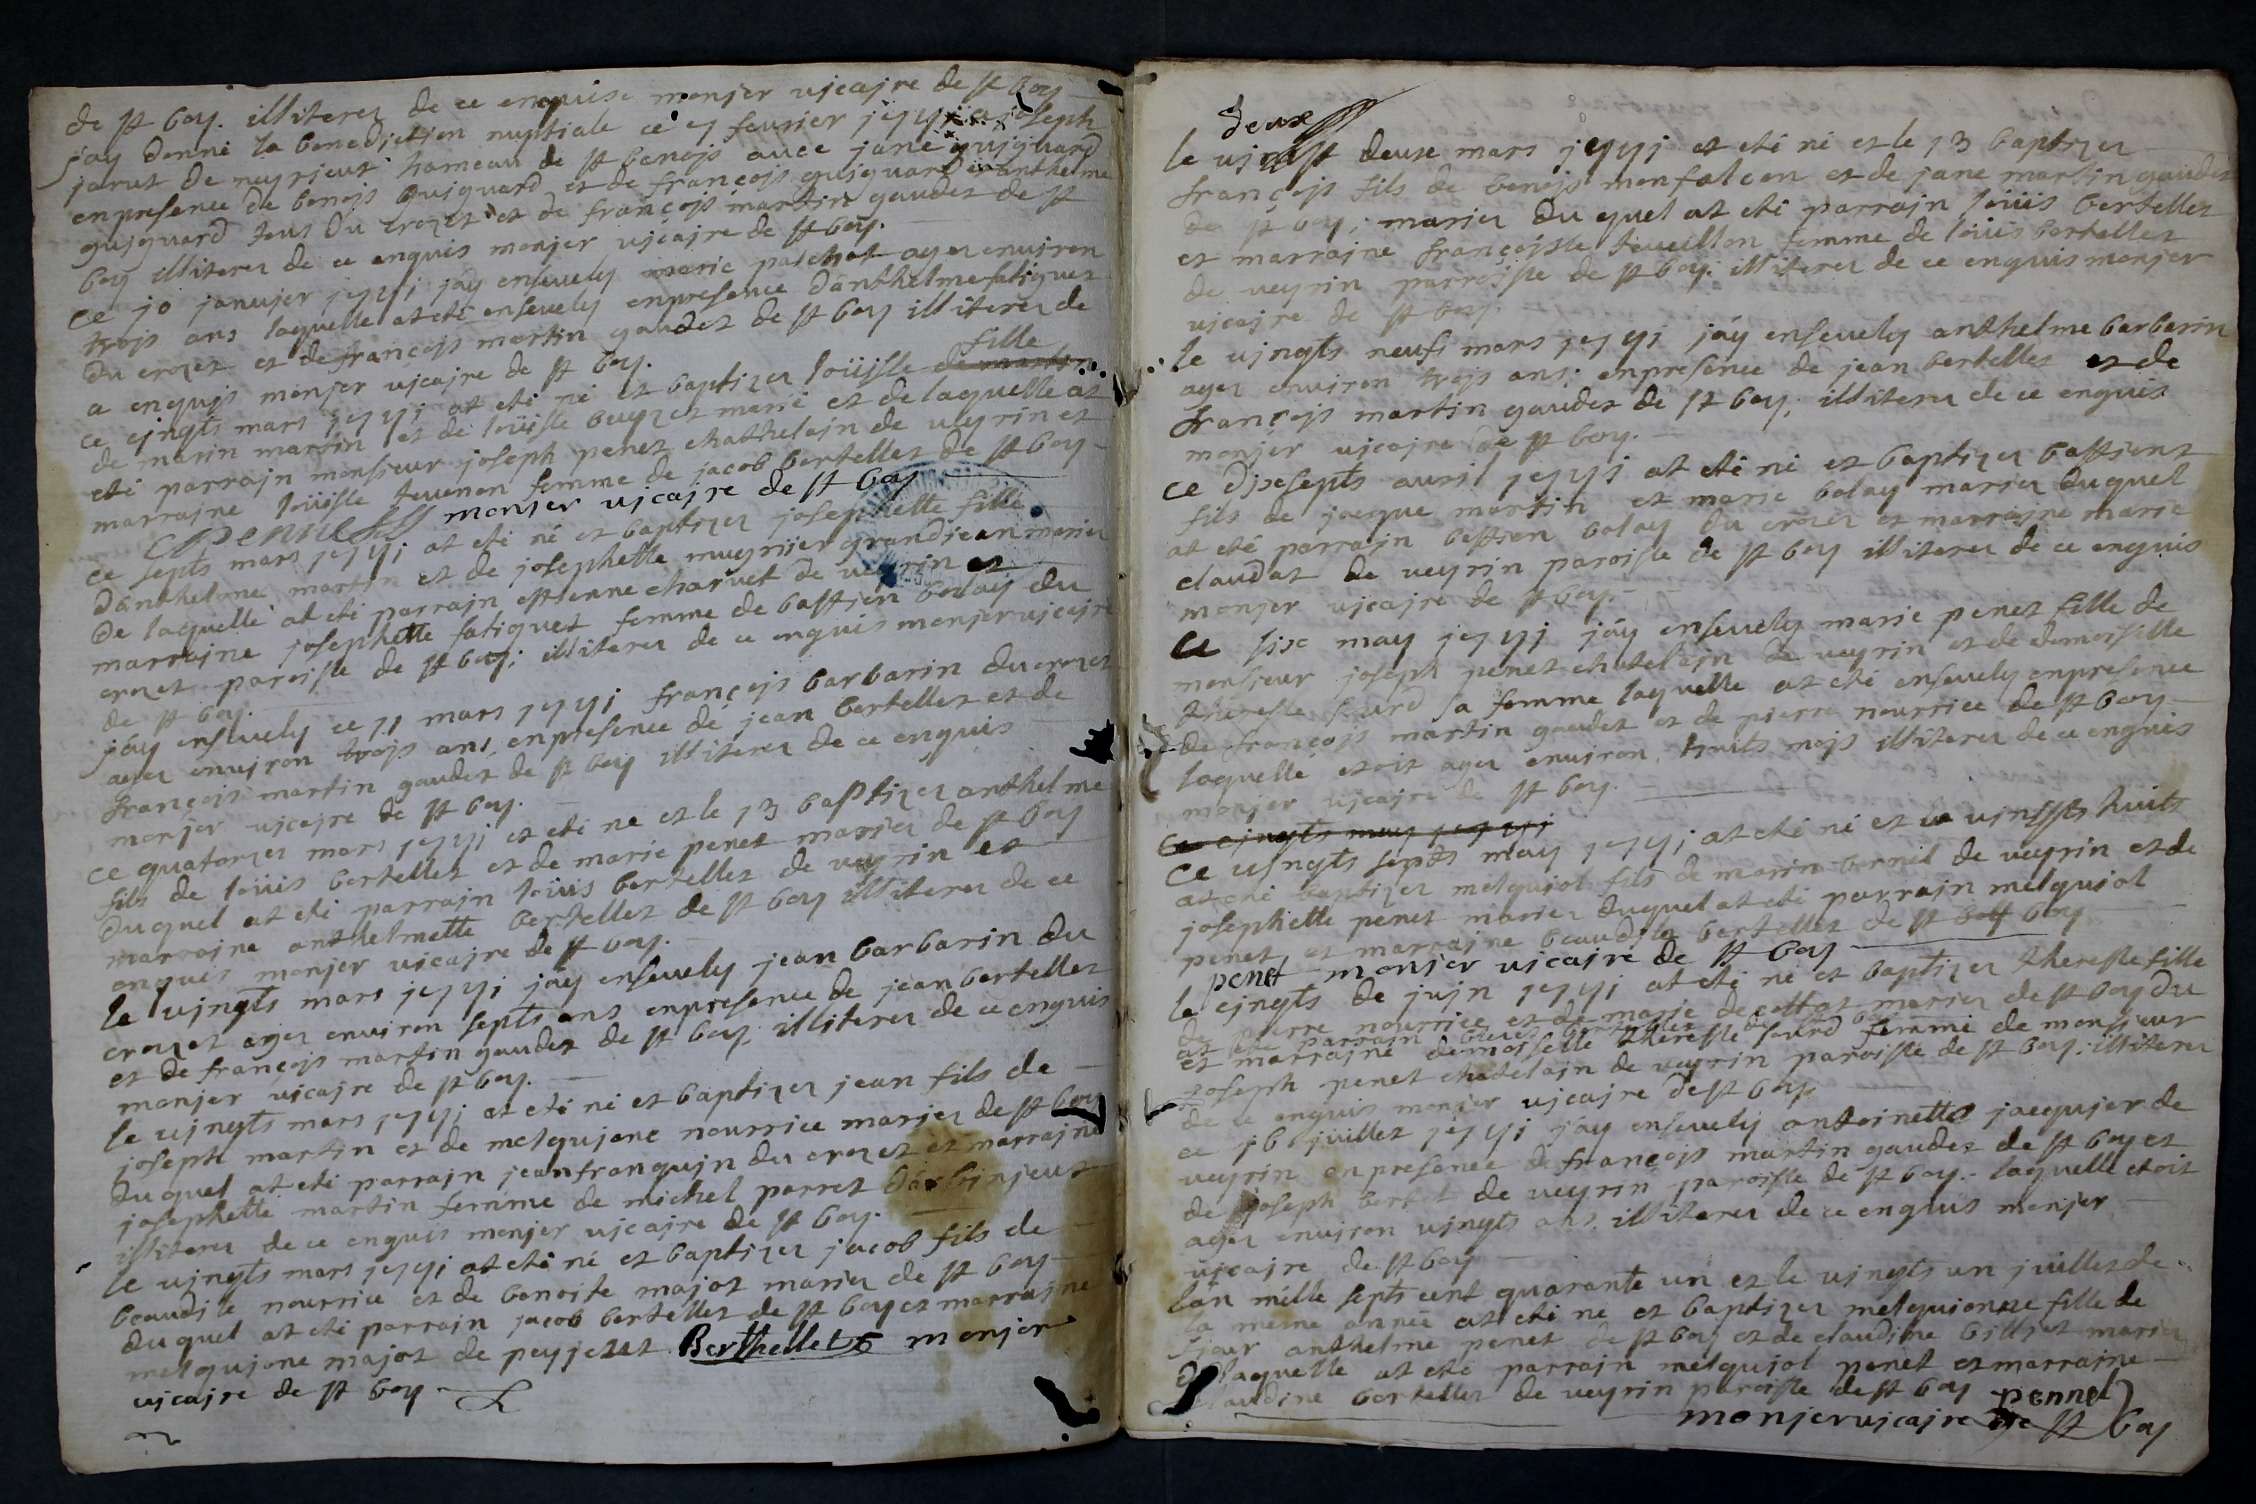 de st boy. illiterez de ce enquise monjer vicajre de st boy
jáy donné la benedjction nuptiale ce 7 feurier 1741 a joseph
jarut de neyrieut hameau de st benojs auec jane gujguard
enpresence de benojs gujguard et de françojs gujguard danthelme
gujguard tous du crozet et de françojs martin gaudet de st
boy illiterez de ce enquis monjer vjcajre de st boy.
ce 10 janujer 1741 jáy enseuely marie patchot agez enujron
trojs ans laquelle at eté enseuely enpresence dánthelme fatiguet
du crozet et de françojs martin gaudet de st boy illiterez de
a enqujs monjer vjcajre de st boy.
fille
ce cjngts mars 1741 at eté né et baptizez loüjsle
de marin martin et de loüjsle buyzet marié et de laquelle at
eté parrajn monsjeur joseph penet chathelajn de veyrin et
marrajne loüjsle teuenon femme de jacob bertellet de st boy
monjer vjcajre de st boy
ce septs mars 1741 at eté né et baptizez josephette fille
dánthelme martin et de josephette mueynier grandjean mariez
de laquelle at eté parrajn estienne charuet de veyrin et
marrajne josephette fatiguet femme de bastjen balay du
crozet paroisle de st boy; illiterez de ce enquis monjer vjcajre
de st boy.
jáy enseuely ce 11 mars 1741 françojs barbarin du crozet
agez enujron trojs ans enpresence de jean bertellet et de
françojs martin gaudet de st boy illiterez de ce enquis
monjer vjcajre de st boy.
ce quatorzez mars 1741 et eté ne et le 13 baptizez anthelme
fils de loüis bertellet et de marie penet mariez de st boy
duquel at eté parrajn loüis bertellet de veyrin et
marrajne anthelmette bertellet de st boy illiterez de ce
enquis monjer vjcajre de st boy.
le vjngts mars 1741 jáy enseuely jean barbarin du
crozet agez enujron septs ans enpresence de jean bertellet
et de françojs martin gaudet de st boy, illiterez de ce enquis
monjer vjcajre de st boy.
le vjngts mars 1741 at eté né et baptizez jean fils de
joseph martin et de melqujone nourrice mariez de st boy
duquel at eté parrajn jean franqujn du crozet et marrajne
josephette martin femme de michel parret
illiterez de ce enquis monjer vjcajre de st boy.
le vjngts mars 1741 at eté né et baptizez jacob fils de
beaudile nourrice et de benoite majot mariez de st boy
duquel at eté parrajn jacob bertellet de st boy et marrajne
melqujone majot de peyjezet. Berthellet monjer
vjcajre de st boy
deux
le vjngst deuxe mars 1741 et eté né et le 13 baptizez
françojs fils de benojs monfalcon et de jane martin gaudet
de st boy; mariez duquel at eté parrajn loüis bertellet
et marrajne françojsle teueillon femme de loüis bertellet
de veyrin parroisle de st boy. illiterez de ce enquis monjer
vjcajre de st boy.
le vjngts neufs mars 1741 jáy enseuely anthelme barbarin
agez enujron trojs ans; enpresence de jean bertellet et de
françojs martin gaudet de st boy; illiterez de ce enquis
monjer vjcajre de st boy.
ce djxsepts auril 1741 at eté né et baptizez bastjent
fils de jacque martin et marie balay mariez duquel
at eté parrajn bastjen balay du crozet et marrajne marie
claudat de veyrin paroisle de st boy illiterez de ce enquis
monjer vjcajre de st boy.
ce sixe may 1741 jáy enseuely marie penet fille de
monsjeur joseph penet chatelajn de veyrin et de demoiselle
theresle sourd sa femme laquelle at eté enseuely enpresence
de françojs martin gaudet et de pierre nourrice de st boy
laquelle etoit agez enujron huits mojs illiterez de ce enquis
monjer vjcajre de st boy.
ce cjngts may 1741
ce vjngts septs may 1741 at eté né et le vjngts huits
at eté baptizez melqujol fils de marin bernil de veyrin et de
josephette penet mariez duquel at eté parrajn melqujol
penet et marrajne beaudile bertellet de st boy
penet monjer vjcajre de st boy
le cjngts de jujn 1741 at eté né et baptizez theresle fille
de pierre nourrice et de marie decottat mariez de st boy du
at eté parrajn
et marrajne demoiselle theresle sourd femme de monsjeur
joseph penet chatelajn de veyrin paroisle de st boy; illiterez
de ce enquis monjer vjcajre de st boy
ce 16 juillet 1741 jáy enseuely antoinette jacqujer de
veyrin enpresence de françojs martin gaudet de st boy et
de joseph de veyrin paroisle de st boy. laquelle etoit
agez enujron vjngts ans. illiterez de ce enquis monjer
vjcajre de st boy
lán mille septs cent quarante un et le vjngts un juillet de
la même année at eté né et baptizez melqujonne fille de
sjeur anthelme penet de st boy et de claudine billjet mariez
de laquelle at eté parrajn melqujol penet et marrajne
claudine bertellet de veyrin paroisle de st boy pennet
monjer vjcajre de st boy